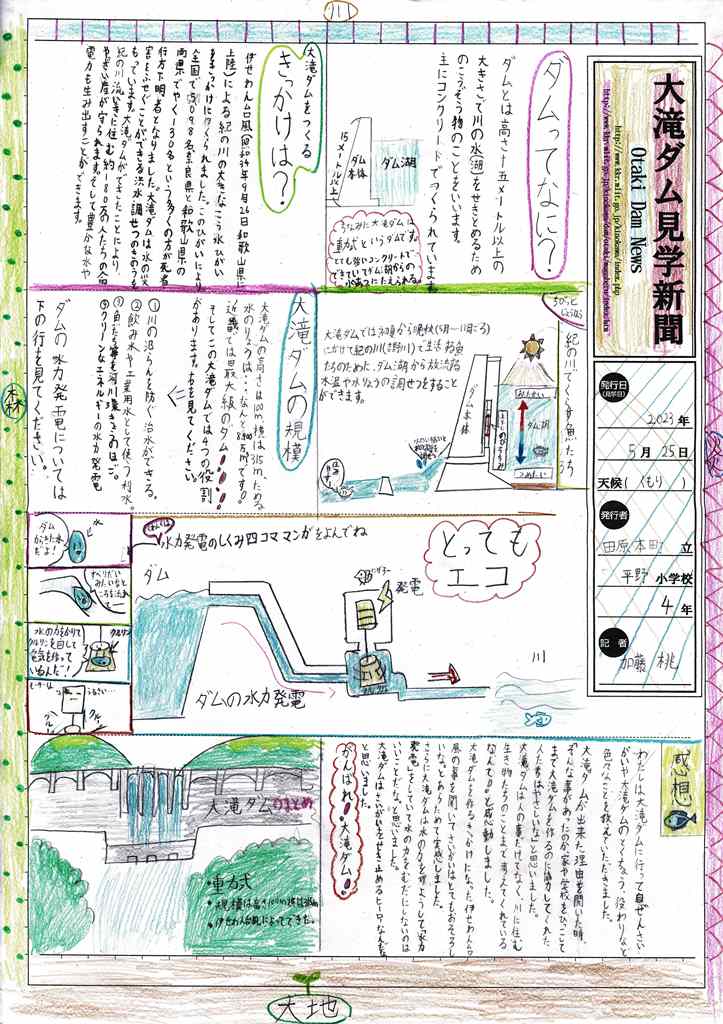 川
大滝ダム見学新聞
Otaki Dam News
http://www.kkr.mlit.go.jp/kinokawa/index.php
発行日
(見学日)
2023年
5月25日
天候(くもり)
発行者
田原本町立
平野小学校
4年
記者
加藤 桃
ダムってなに?
ダムとは高さ十五メートル以上の
大きさで川の水(湖)をせきとめるため
のこうぞう物のことをいいます。
主にコンクリートでつくられています。
ダム湖
ダム
本体
15メートル以上
ちなみに大滝ダムは
重力式というダムです。
とても強いコンクリートで
できていてダム湖からの
水あつにたえられる。
大滝ダムをつくる
きっかけは?
伊せわん台風(昭和34年9月26日和歌山県に
上陸)による紀の川の大きなこう水ひがい
をきっかけにつくられました。このひがいにより
全国で5098名奈良県と和歌山県の
両県でやく130名という多くの方が死者
行方不明者となりました。大滝ダムは水の災
害をふせぐことができる洪水調せつのきのうを
もっています。大滝ダムができたことにより、
紀の川流いきに住む約180万人たちの命
やざい産が守られます。そして豊かな水や
電力も生み出すことができます。
紀の川でくらす魚たち
大滝ダムでは初春から晩秋(5月〜11月ごろ)
にかけて紀の川(吉野川)で生活する魚
たちのために、ダム湖から放流する
水温や水りょうの調せつをすること
ができます。
あたたかい
ダム湖
つめたい
ダム本体
大滝ダムの規模
大滝ダムの高さは100m、横は315m、ためる
水のりょうは…なんと8400万m³です!
近畿では最大級のダム!
そしてこの大滝ダムでは4つの役割
があります。左を見てください。
①川のはんらんを防ぐ治水ができる。
②飲み水や工業用水として使う利水。
③魚たち等を河川環きょうのほご。
④クリーンなエネルギーの水力発電
ダムの水力発電については
下の行を見てください。
森
水力発電のしくみ四コママンガをよんでね
とっても
エコ
ダム
発電
川
ダムの水力発電
ダム
からきた水
だよ!
水
すべりだい
みたいなと
ころを流れ
る〜
水の力をかりて
クルリンを回して
電気を作って
いるんだ!
クルリン
感想
わたしは大滝ダムに行って自ぜんさい
がいや大滝ダムのとくちょう、役わりなど
色々なことを教えていただきました。
大滝ダムが出来た理由を聞いた時、
そんな事があったのか、家や学校をひっこして
まで大滝ダムを作るのに協力してくれた
人た者はやさしいな。と思いました。
大滝ダムは人の事だけでなく、川に住む
生き物たちのことまで考えてくれている
なんて!!と感動しました。
大滝ダムを作るきっかけになった伊せわん台
風の事を聞いてさいがいはとてもおそろし
いな。とあらためて実感しました。
さらに大滝ダムは水の力を利ようして「水力
発電」をしていて水の力をむだにしないのは
いいことだな。と思いました。
大滝ダムはさいがいをせき止めるヒーローなんだな。
と思いました。
がんばれ!大滝ダム!
大滝ダムのまとめ
・重力式
・規模は高さ100m横は315m
・伊せわん台風によってできた。
大地